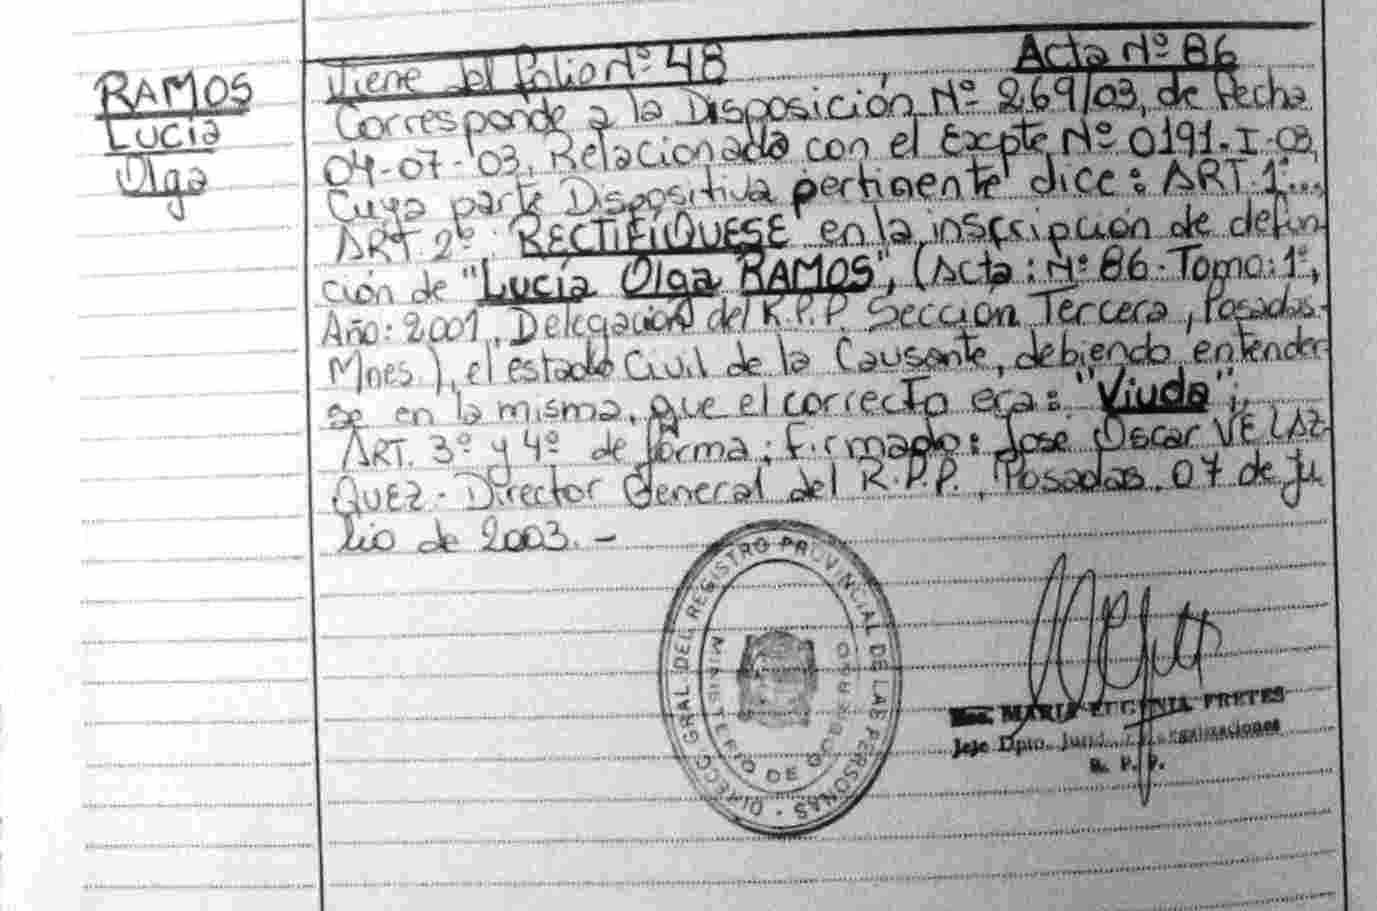 RAMOS
Lucía
Olga
Viene del folio Nº 48 Acta Nº 86
Corresponde a la Disposición Nº 269/03, de fecha
04-07-03, Relacionada con el Expte Nº 0191-I-03,
Cuya parte Dispositiva pertinente dice: ART. 1º...
ART 2º: RECTIFÍQUESE en la inscripción de defun
ción de "Lucía Olga RAMOS", (Acta: Nº 86. Tomo: 1º,
Año: 2001, Delegación del R.P.P. Sección Tercera, Posadas-
Mnes.), el estado Civil de la Causante, debiendo entender-
se en la misma, que el correcto era: "Viuda";
ART. 3º y 4º de forma; firmado: José Oscar VELAZ-
QUEZ. Director General del R.P.P., Posadas, 07 de ju
lio de 2003.-
DIRECC. GRAL. DEL REGISTRO PROVINCIAL DE LAS PERSONAS
MINISTERIO DE GOBIERNO
MARIA EUGENIA FRETES
Jefe Dpto.
R. P. P.